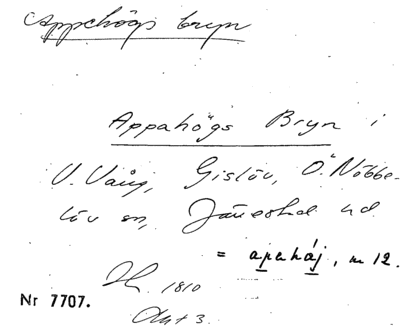 Appehögs bryn
Appahögs Bryn i
V. Vång, Gislöv, Ö. Nöbbe-
löv sn, Järrestad hd.
= apaháj, m 12.
1810
Nr 7707.
Akt 3.